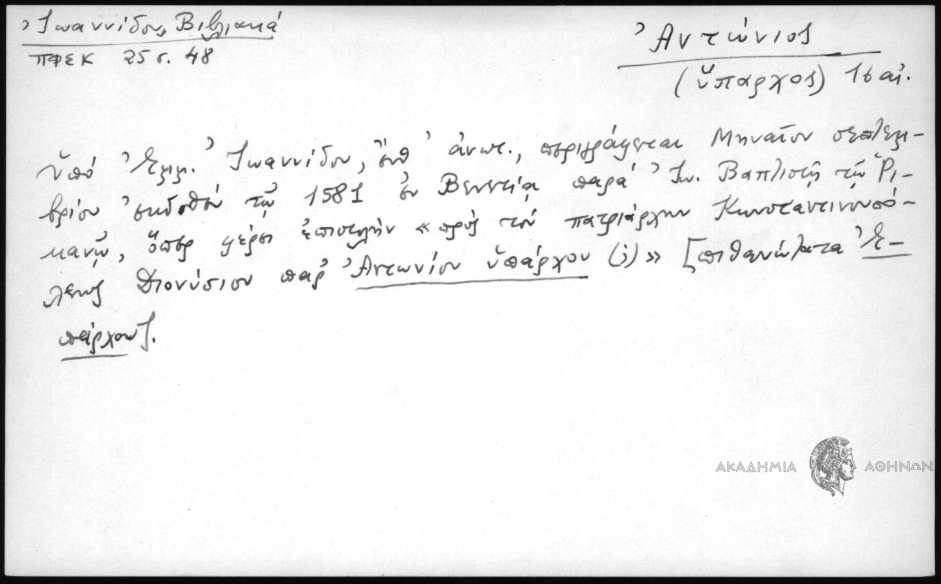 Ἰωαννίδου, Βιβλιακά
ΠΦΣΚ 25 σ. 48
Ἀντώνιος
(ὕπαρχος) 16 αἰ.
Ὑπό Ἐμμ. Ἰωαννίδου, ἔνθ' ἀνωτ., περιγράφεται Μηναῖον σεπτεμ-
βρίου ἐκδοθέν τῷ 1581 ἐν Βενετίᾳ παρά Ἰω. Βαπτιστῇ τῷ Ρι-
κανῷ, ὅπερ φέρει ἐπιστολήν «πρός τόν πατριάρχην Κωνσταντινουπό-
λεως Διονύσιον παρ' Ἀντωνίου ὑπάρχου (;)» [πιθανώτατα Ἐ-
πάρχου].
ΑΚΑΔΗΜΙΑ ΑΘΗΝΩΝ